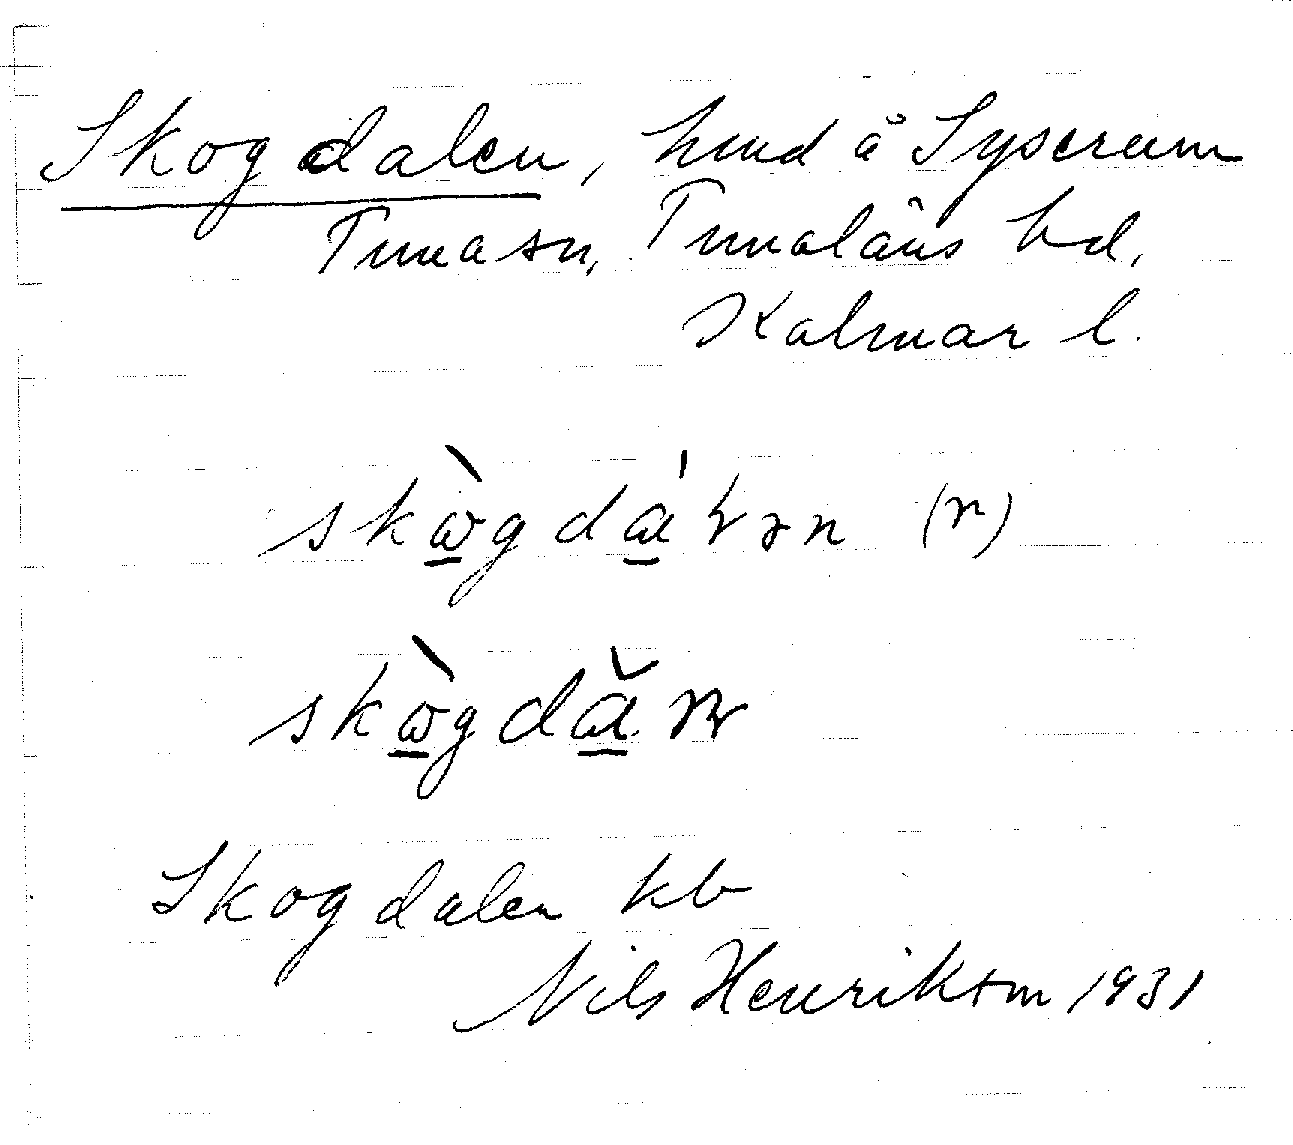 Skogdalen, hmd å Syserum
Tuna sn, Tunaläns hd,
Kalmar l.
skɷ̀gdɑ́ɽən (n)
skɷ̀gdɑ̆ɳ
Skogdalen kb
Nils Henrikson 1931